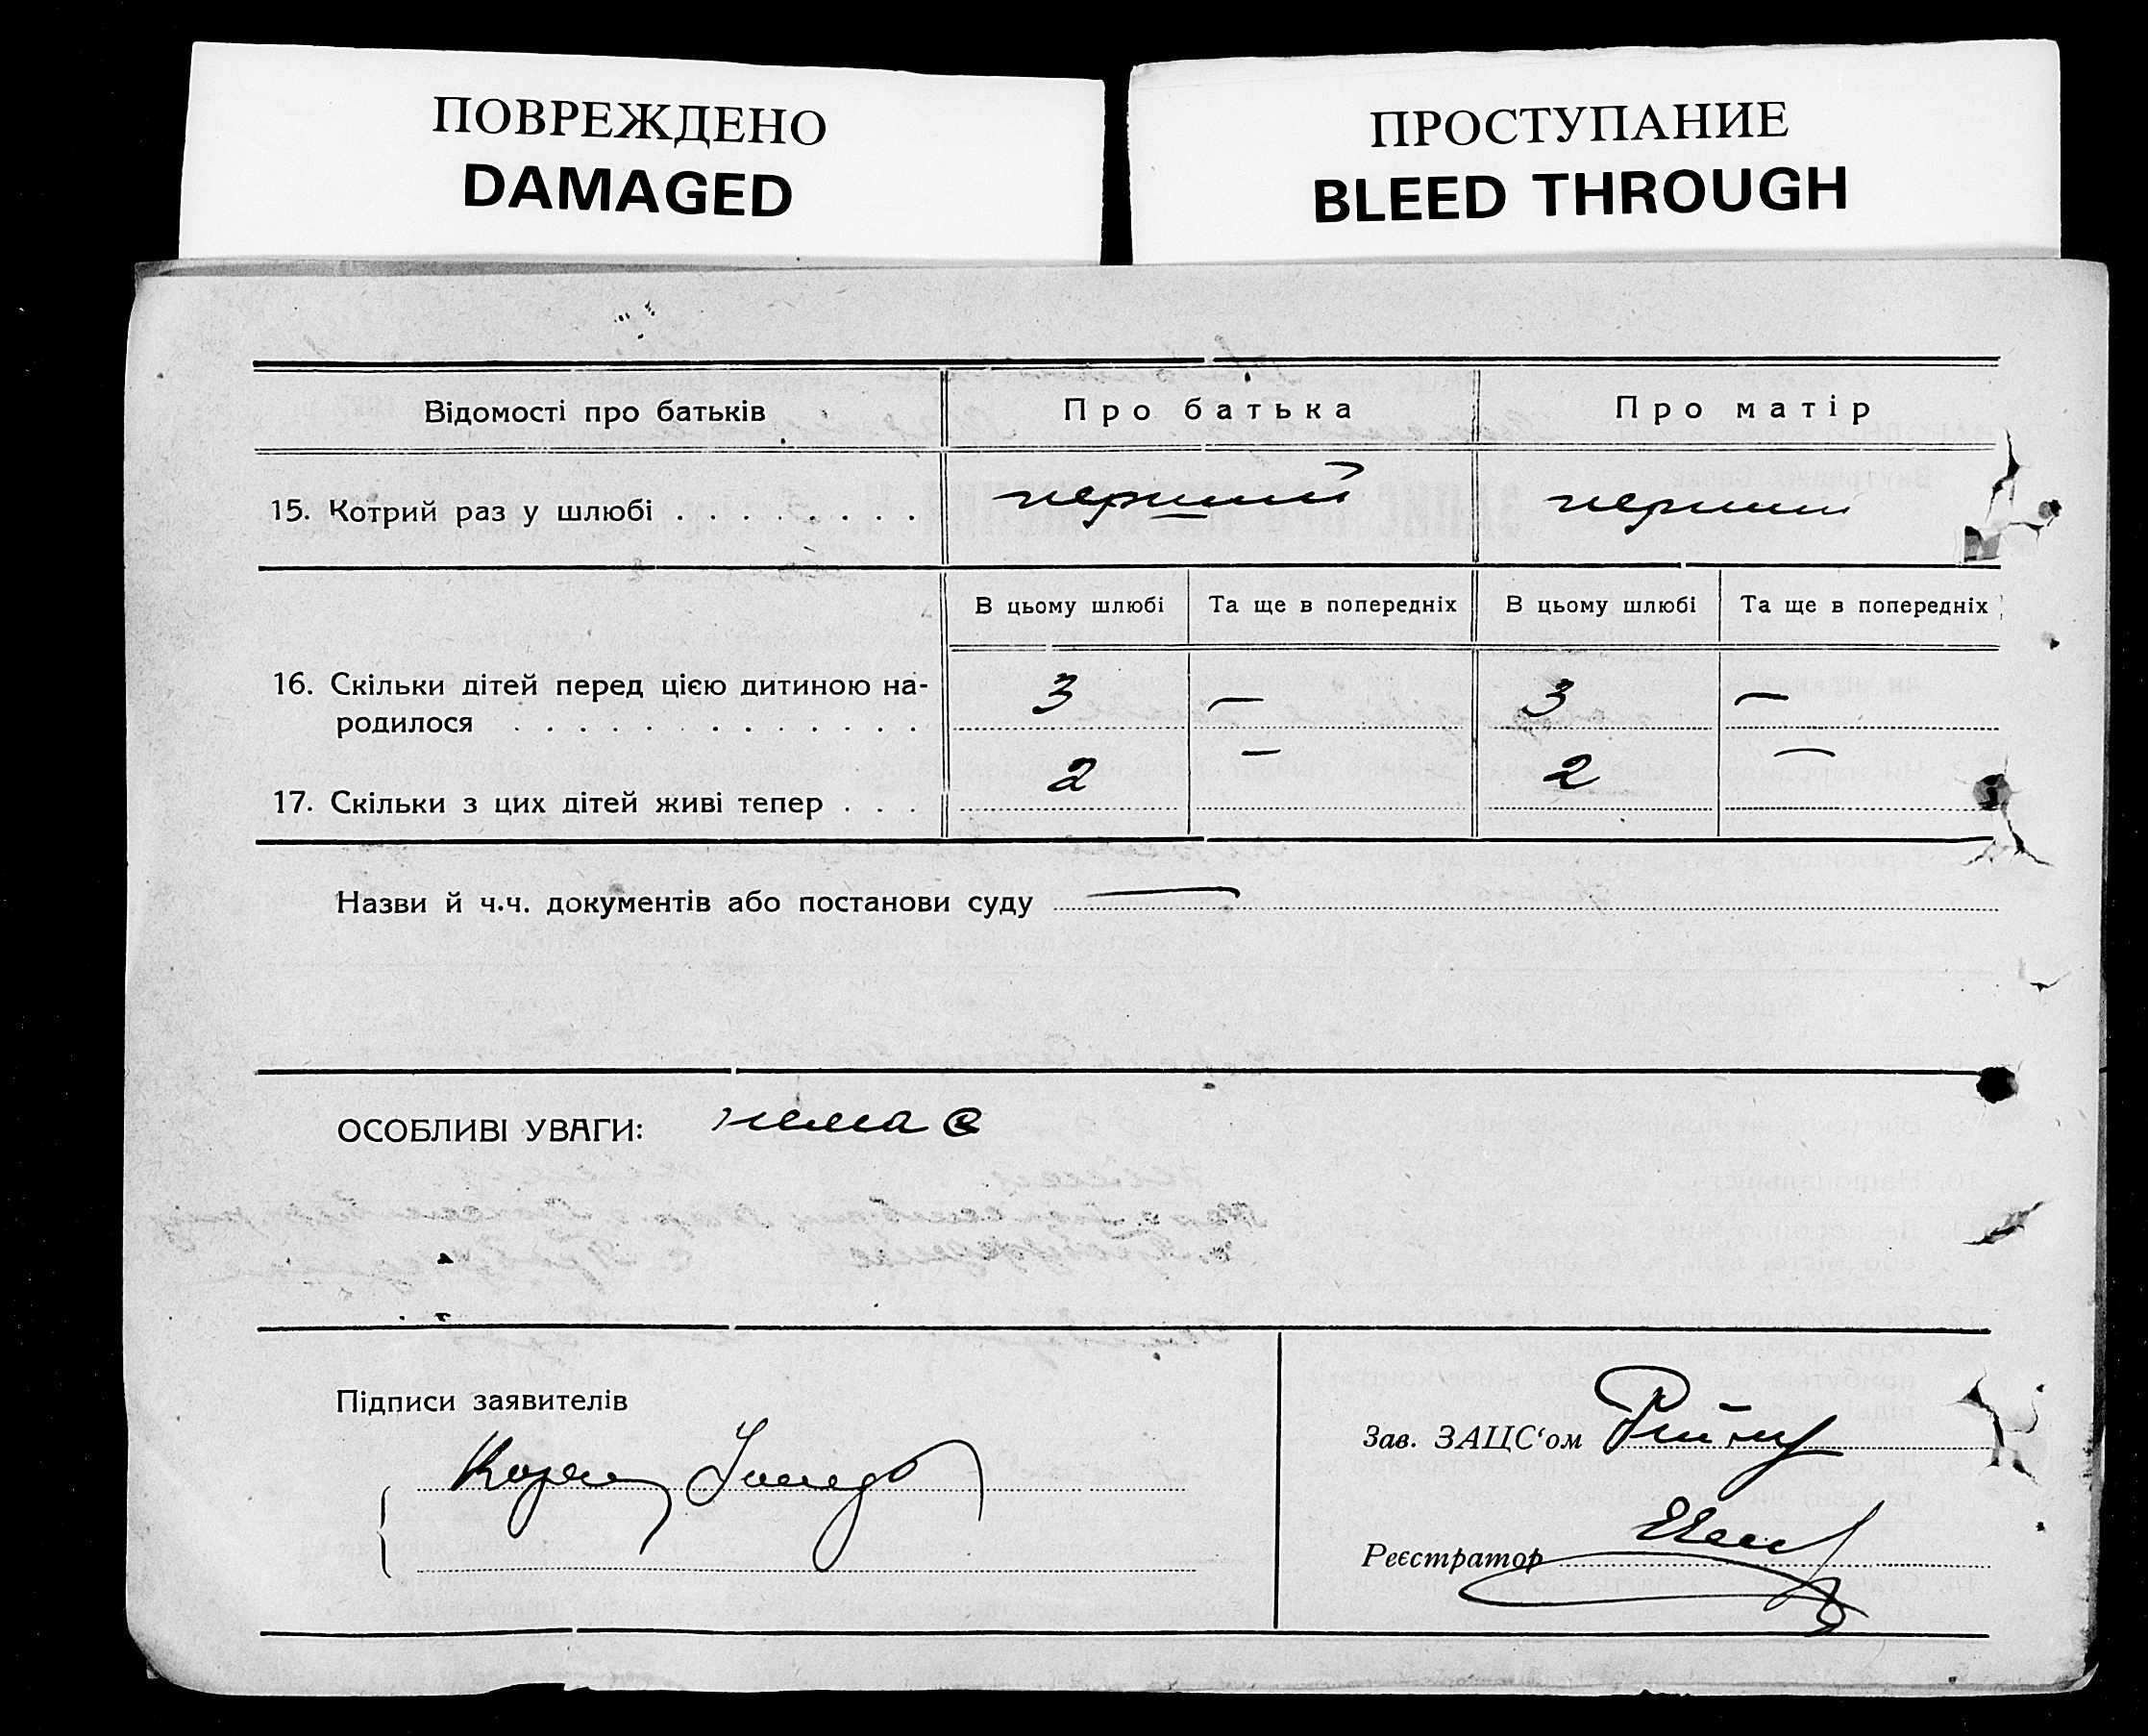 ПОВРЕЖДЕНО
DAMAGED
ПРОСТУПАНИЕ
BLEED THROUGH
Відомості про батьків
Про батька
Про матір
15. Котрий раз у шлюбі . . . . . . . .
перший
перший
В цьому шлюбі
Та ще в попередніх
В цьому шлюбі
Та ще в попередніх
16. Скільки дітей перед цією дитиною на-
родилося . . . . . . . . . . . . .
3
—
3
—
17. Скільки з цих дітей живі тепер . . .
2
—
2
—
Назви й ч.ч. документів або постанови суду —
ОСОБЛИВІ УВАГИ: немає
Підписи заявителів
Зав. ЗАЦС‘ом
Реєстратор